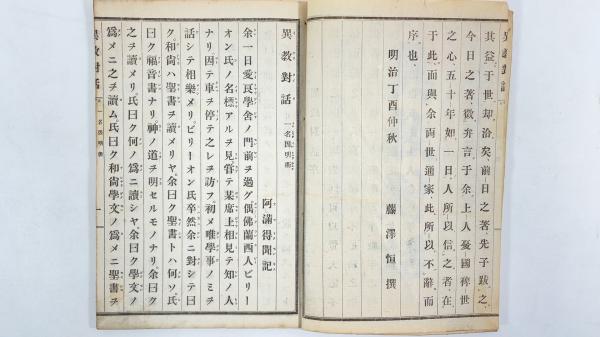 其益于世却洽矣、前日之著、先子跋之、
今日之著、徵弁言、于余、上人憂國裨世
之心、五十年如一日、人所以信之者、在
于此、而與余兩世通家、此所以不辭而
序也、
明治丁酉仲秋
藤澤恒撰
異教對話 一名因明術
阿滿得聞記
余一日愛良學舍ノ門前ヲ過グ偶佛蘭西人ビリー
オン氏ノ名標アルヲ見甞テ某席上相見テ知ノ人
ナリ因テ車ヲ停テ之レヲ訪フ初メ唯學事ノミヲ
話シテ相樂メリビリーオン氏卒然余ニ對シテ曰
ク和尙ハ聖書ヲ讀メリヤ余曰ク聖書トハ何ソ氏
曰ク福音書ナリ神ノ道ヲ明セルモノナリ余曰ク
之ヲ讀メリ氏曰ク何ノ爲ニ讀シヤ余曰ク學文ノ
爲メニ之ヲ讀ム氏曰ク和尙學文ノ爲メニ聖書ヲ
異教對話